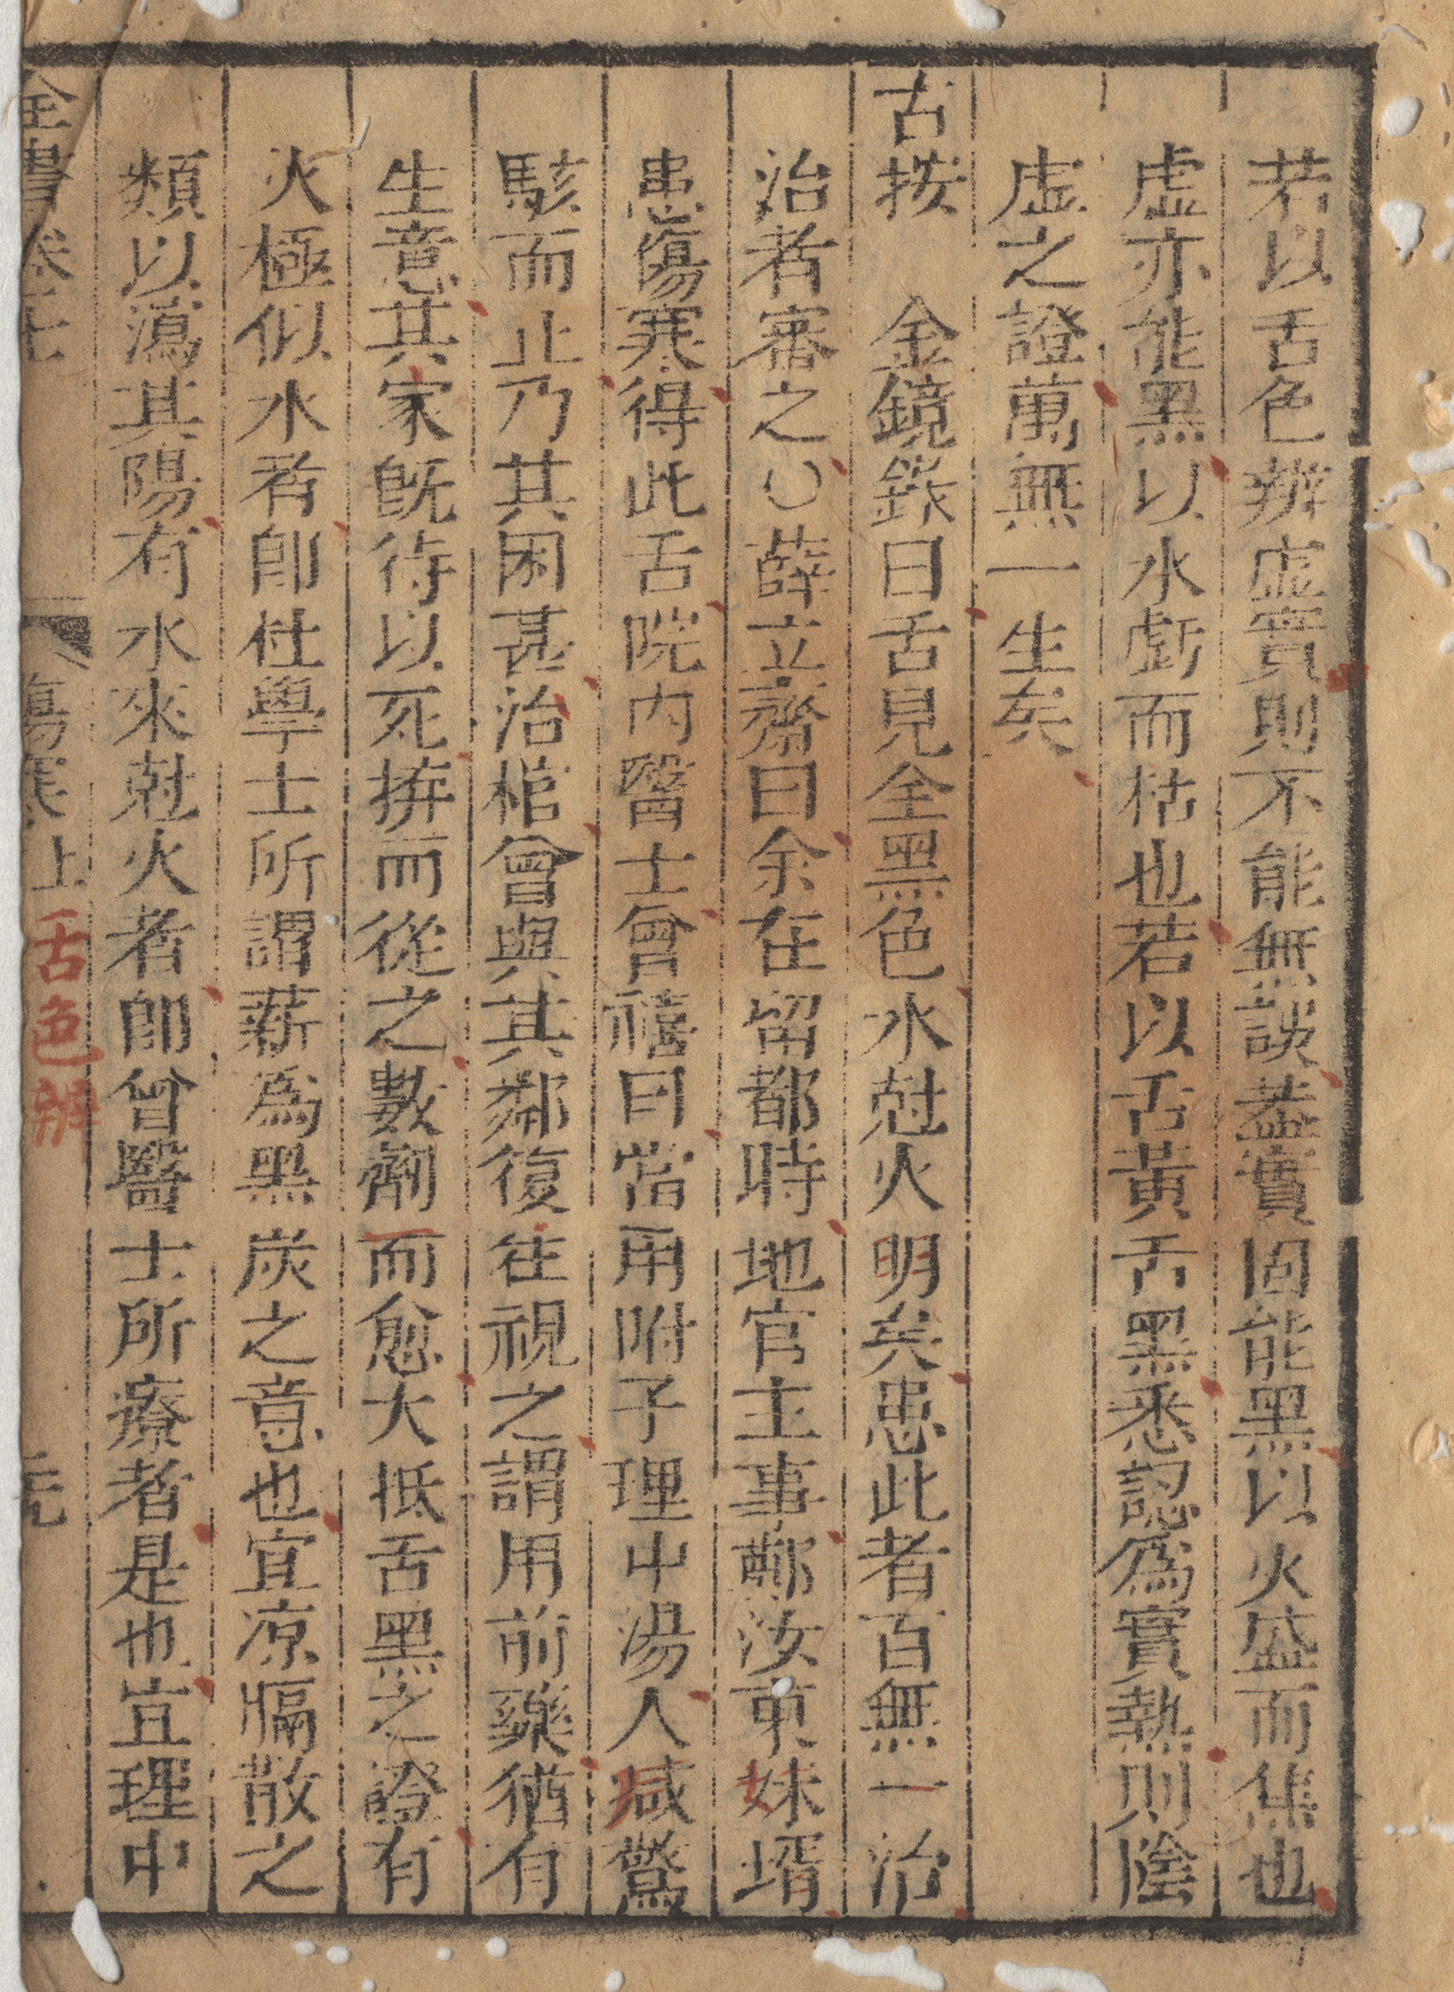 若以舌色辨虛實則不能無誤葢實固能黑以火盛而焦也
虛亦能黑以水虧而枯也若以舌黃舌黑悉認爲實熱則陰
虛之證萬無一生矣
古按　金鏡錄曰舌見全黑色水尅火明矣患此者百無一治
治者審之○薛立齋曰余在留都時地官主事鄺汝東妹壻
患傷寒得此舌院内醫士曾禧曰當用附子理中湯人咸驚
駭而止乃其困甚治棺曾與其鄰復往視之謂用前藥猶有
生意其家旣待以死拚而從之數劑而愈大抵舌黑之證有
火極似水者卽杜學士所謂薪爲黑炭之意也宜凉膈散之
類以瀉其陽有水來尅火者卽曾醫士所療者是也宜理中
全書卷七　傷寒上　舌色辨